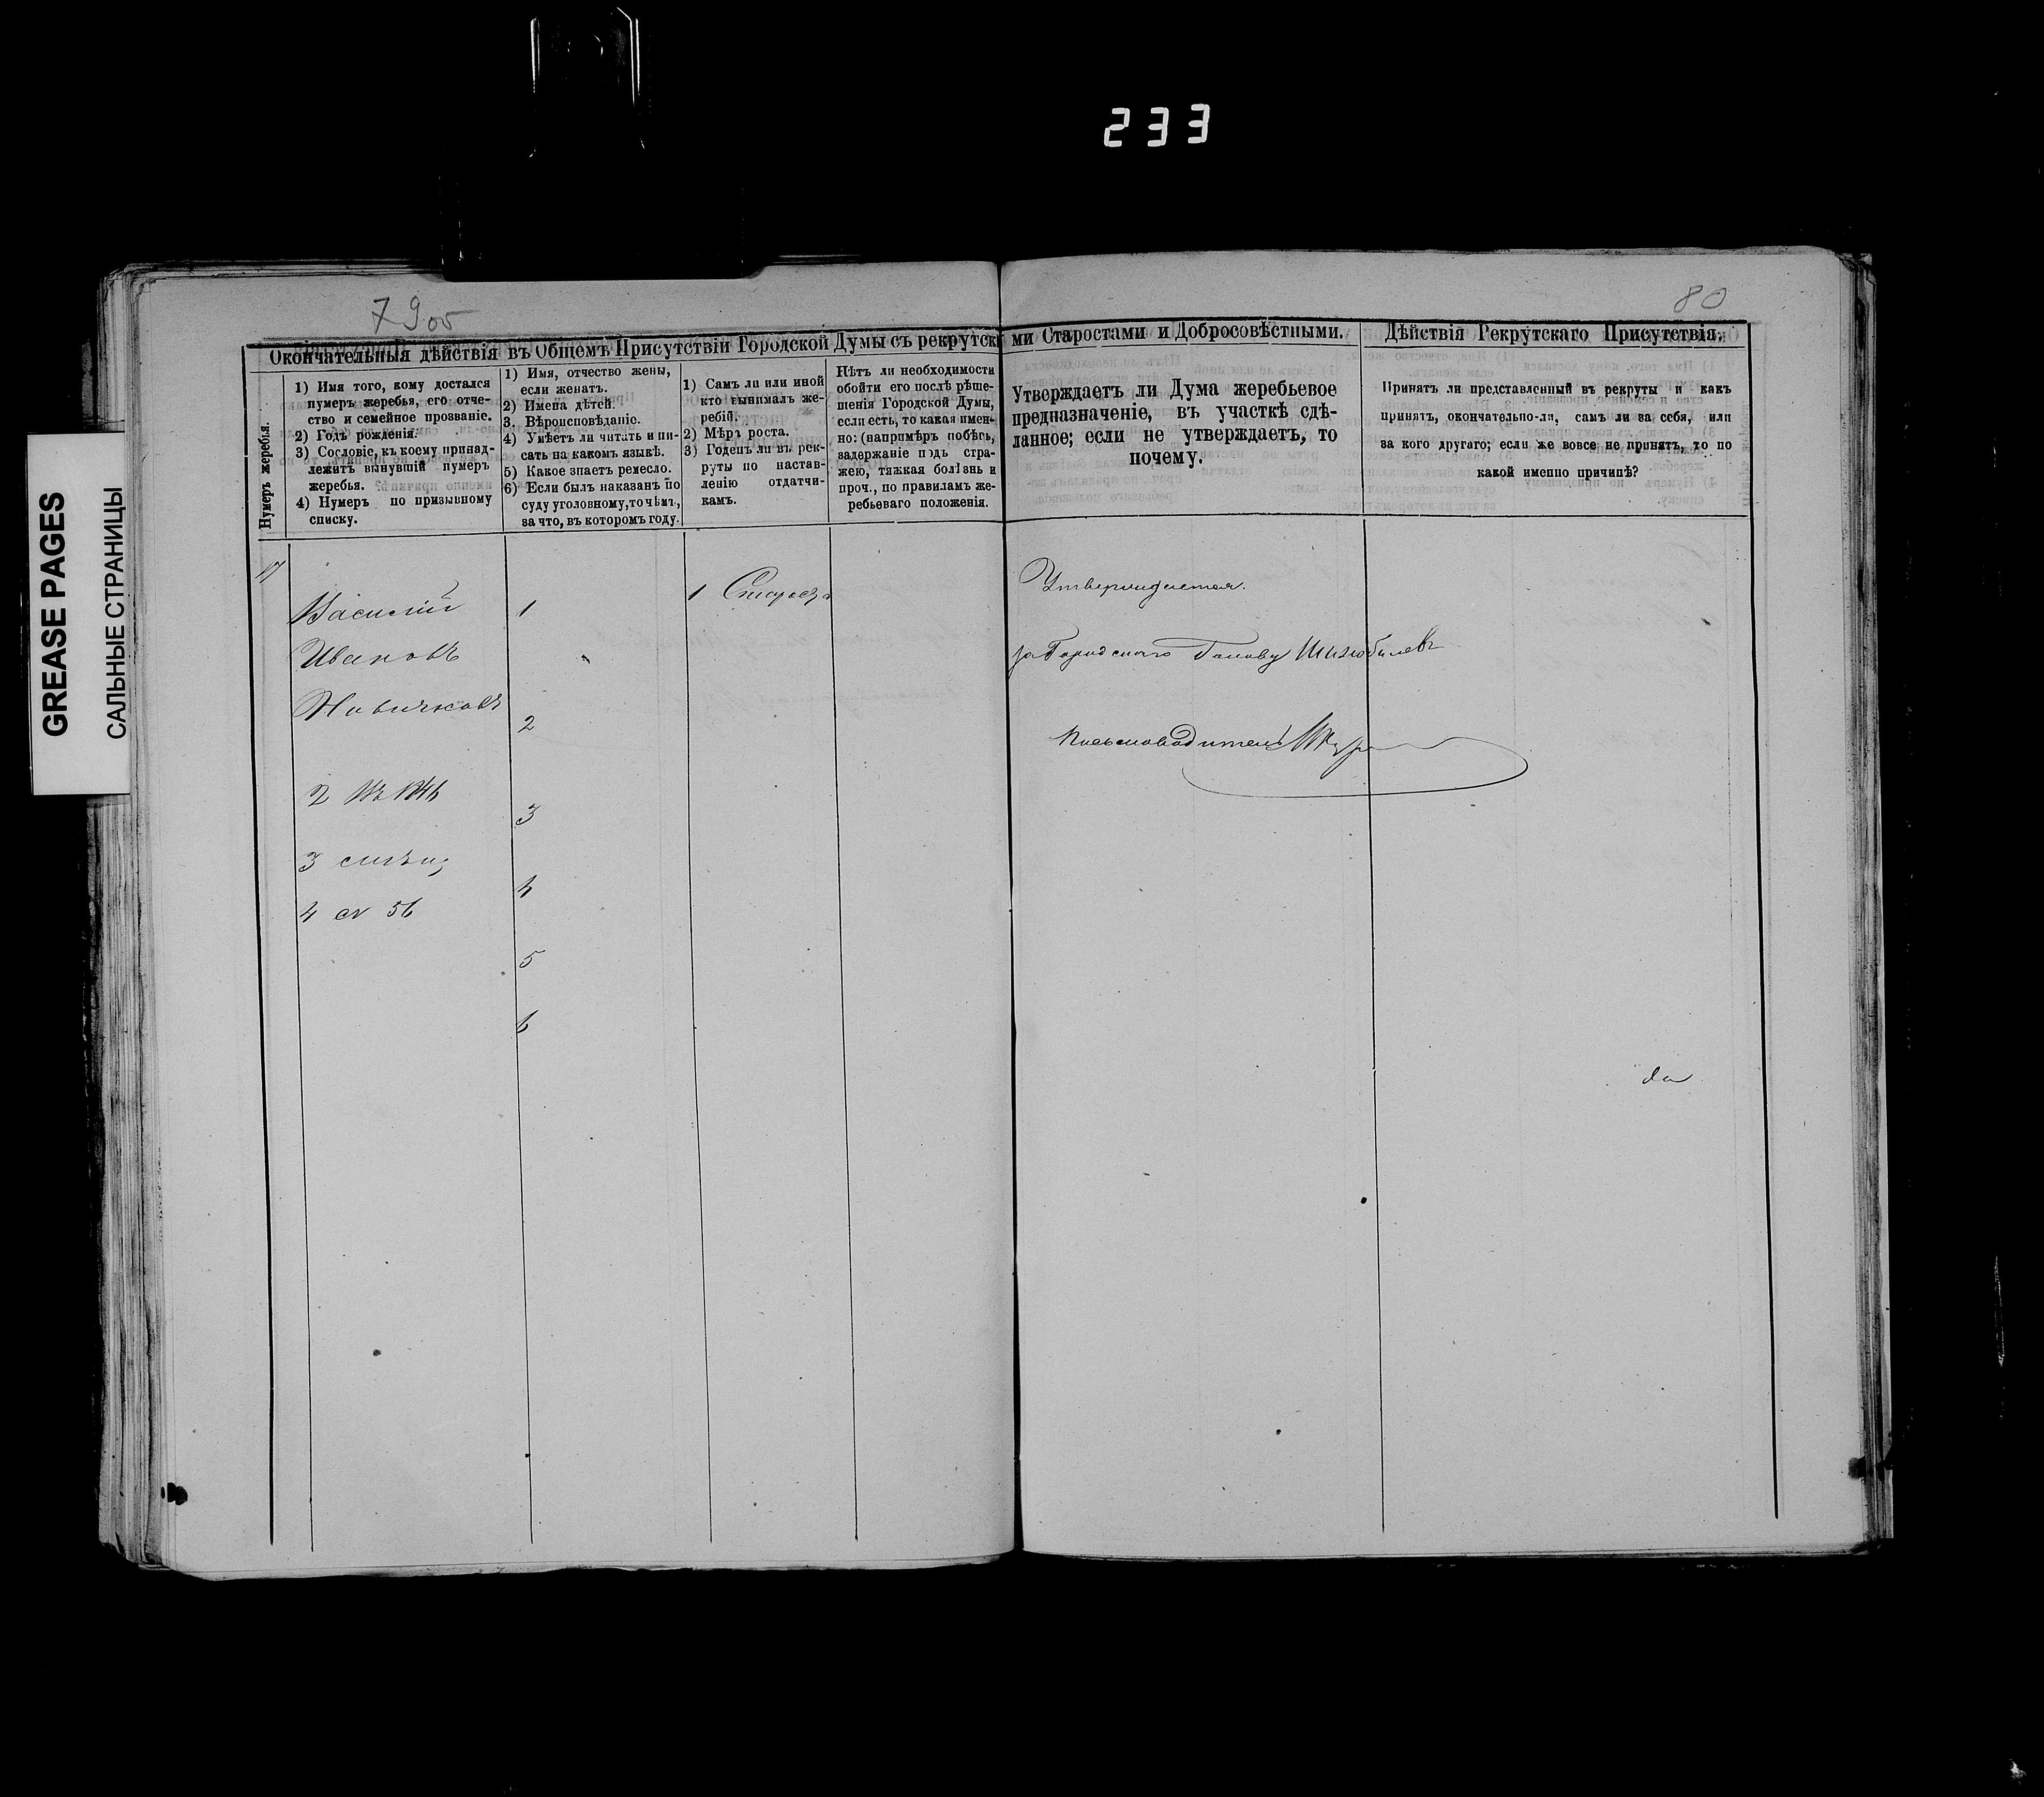 233
GREASE PAGES
САЛЬНЫЕ СТРАНИЦЫ
79 об
80
Окончательныя дѣйствія въ Общемъ Присутствіи Городской Думы съ рекрутски
ми Старостами и Добросовѣстными.
Дѣйствія Рекрутскаго Присутствія.
Нумеръ жеребья.
1) Имя того, кому достался
нумеръ жеребья, его отче-
ство и семейное прозваніе.
2) Годъ рожденія.
3) Сословіе, къ коему принад-
лежитъ вынувшій нумеръ
жеребья.
4) Нумеръ по призывному
списку.
1) Имя, отчество жены,
если женатъ.
2) Имена дѣтей.
3. Вѣроисповѣданіе.
4) Умѣетъ ли читать и пи-
сать на какомъ языкѣ.
5) Какое знаетъ ремесло.
6) Если былъ наказанъ по
суду уголовному, то чѣмъ,
за что, въ которомъ году.
1) Самъ ли или иной
кто вынималъ же-
ребій.
2) Мѣръ роста.
3) Годенъ ли въ рек-
руты по настав-
ленію отдатчи-
камъ.
Нѣтъ ли необходимости
обойти его послѣ рѣше-
шенія Городской Думы,
если есть, то какая имен-
но: (напримѣръ побѣгъ,
задержаніе подъ стра-
жею, тяжкая болѣзнь и
проч., по правиламъ же-
ребьеваго положенія.
Утверждаетъ ли Дума жеребьевое
предназначеніе, въ участкѣ сдѣ-
ланное; если не утверждаетъ, то
почему.
Принятъ ли представленный въ рекруты и какъ
принятъ, окончательно-ли, самъ ли за себя, или
за кого другаго; если же вовсе не принятъ, то по
какой именно причинѣ?
17
Василій
Ивановъ
Новичковъ
2 1846
3
4 56
1
2
3
4
5
6
1 Староста
Утверждается.
за Городскаго Голову
Письмоводитель
да